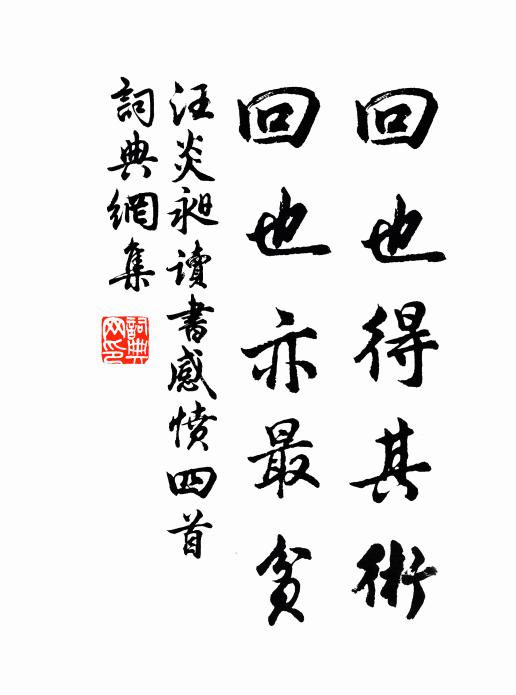 回也得其術
回也亦最貧
汪炎昶讀書感憤四首
詞典網集
詞典網印